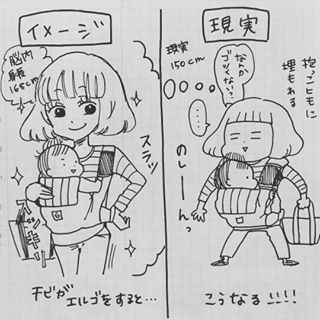 イメージ
脳内
身長
165cm
スラッ
シャキーン
チビが
エルゴをすると…
現実
現実
150cm
なんか
ゴツくない?
……
抱っこヒモに
埋もれる
のしーんっ
こうなる!!!!